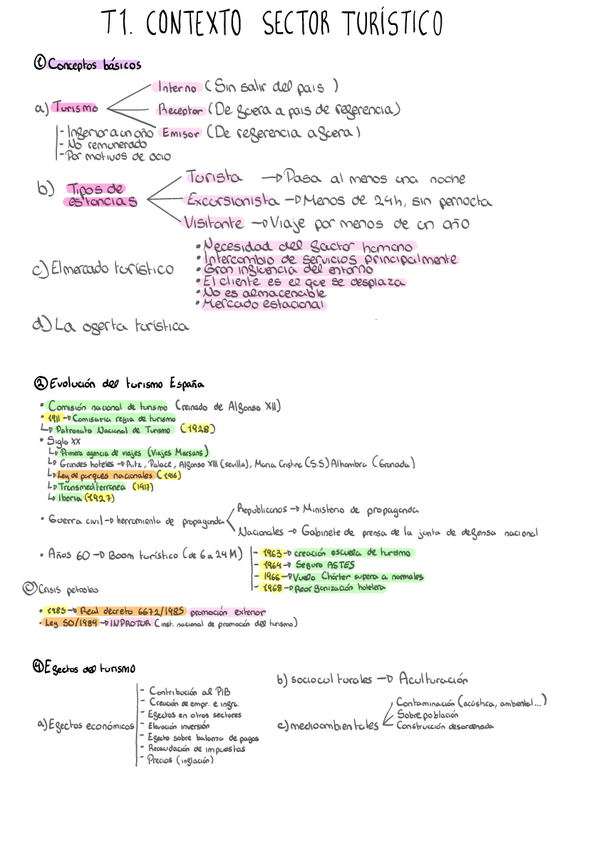 T1. CONTEXTO SECTOR TURÍSTICO
① Conceptos básicos
a) Turismo
Interno (Sin salir del pais)
Receptor (De fuera a pais de referencia)
Emisor (De referencia a fuera)
- Inferior a un año
- No remunerado
- Por motivos de ocio
b) Tipos de estancias
Turista → Pasa al menos una noche
Excursionista → Menos de 24h, sin pernocta
Visitante → Viaje por menos de un año
c) El mercado turístico
• Necesidad del factor humano
• Intercambio de servicios principalmente
• Gran influencia del entorno
• El cliente es el que se desplaza
• No es almacenable
• Mercado estacional
d) La oferta turística
② Evolución del turismo España
• Comisión nacional de turismo (reinado de Alfonso XII)
• 1911 → Comisaria regia de turismo
↳ Patronato Nacional de Turismo (1928)
• Siglo XX
↳ Primera agencia de viajes (Viajes Marsans)
↳ Grandes hoteles → Ritz, Palace, Alfonso XIII (sevilla), Maria Cristina (S.S) Alhambra (Granada)
↳ Ley de parques nacionales (1916)
↳ Transmediterranea (1917)
↳ Iberia (1927)
• Guerra civil → herramienta de propaganda
Republicanos → Ministerio de propaganda
Nacionales → Gabinete de prensa de la junta de defensa nacional
• Años 60 → Boom turístico (de 6 a 24 M)
- 1963 → creación escuela de turismo
- 1964 → Seguro ASTES
- 1966 → Vuelo Chárter supera a normales
- 1968 → Reorganización hotelera
Crisis petroleo
• 1985 → Real decreto 6672/1985 promoción exterior
• Ley 50/1984 → INPROTUR (inst. nacional de promoción del turismo)
④ Efectos del turismo
a) Efectos económicos
- Contribución al PIB
- Creación de empr. e infra.
- Efectos en otros sectores
- Elevación inversión
- Efecto sobre balanza de pagos
- Recaudación de impuestos
- Precios (inflación)
b) socioculturales → Aculturación
c) medioambientales
Contaminación (acústica, ambiental...)
Sobrepoblación
Construcción desordenada